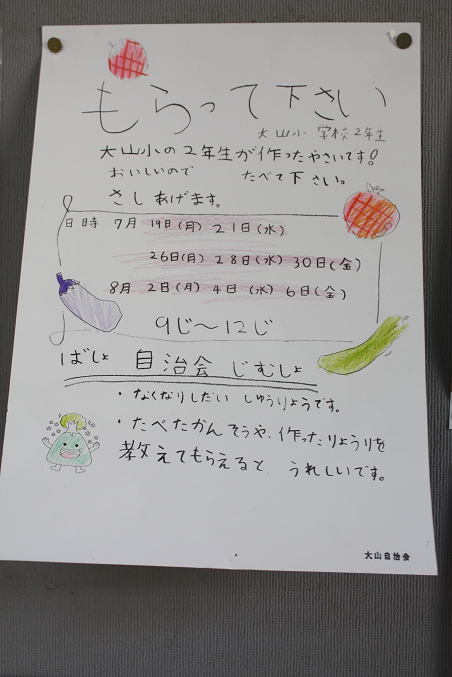 もらって下さい
大山小学校2年生
大山小の2年生が作ったやさいです!
おいしいので たべて下さい。
さしあげます。
日時 7月 19日(月) 21日(水)
26日(月) 28日(水) 30日(金)
8月 2日(月) 4日(水) 6日(金)
9じ〜12じ
ばしょ 自治会 じむしょ
・なくなりしだい しゅうりょうです。
・たべたかんそうや、作ったりょうりを
教えてもらえると うれしいです。
大山自治会